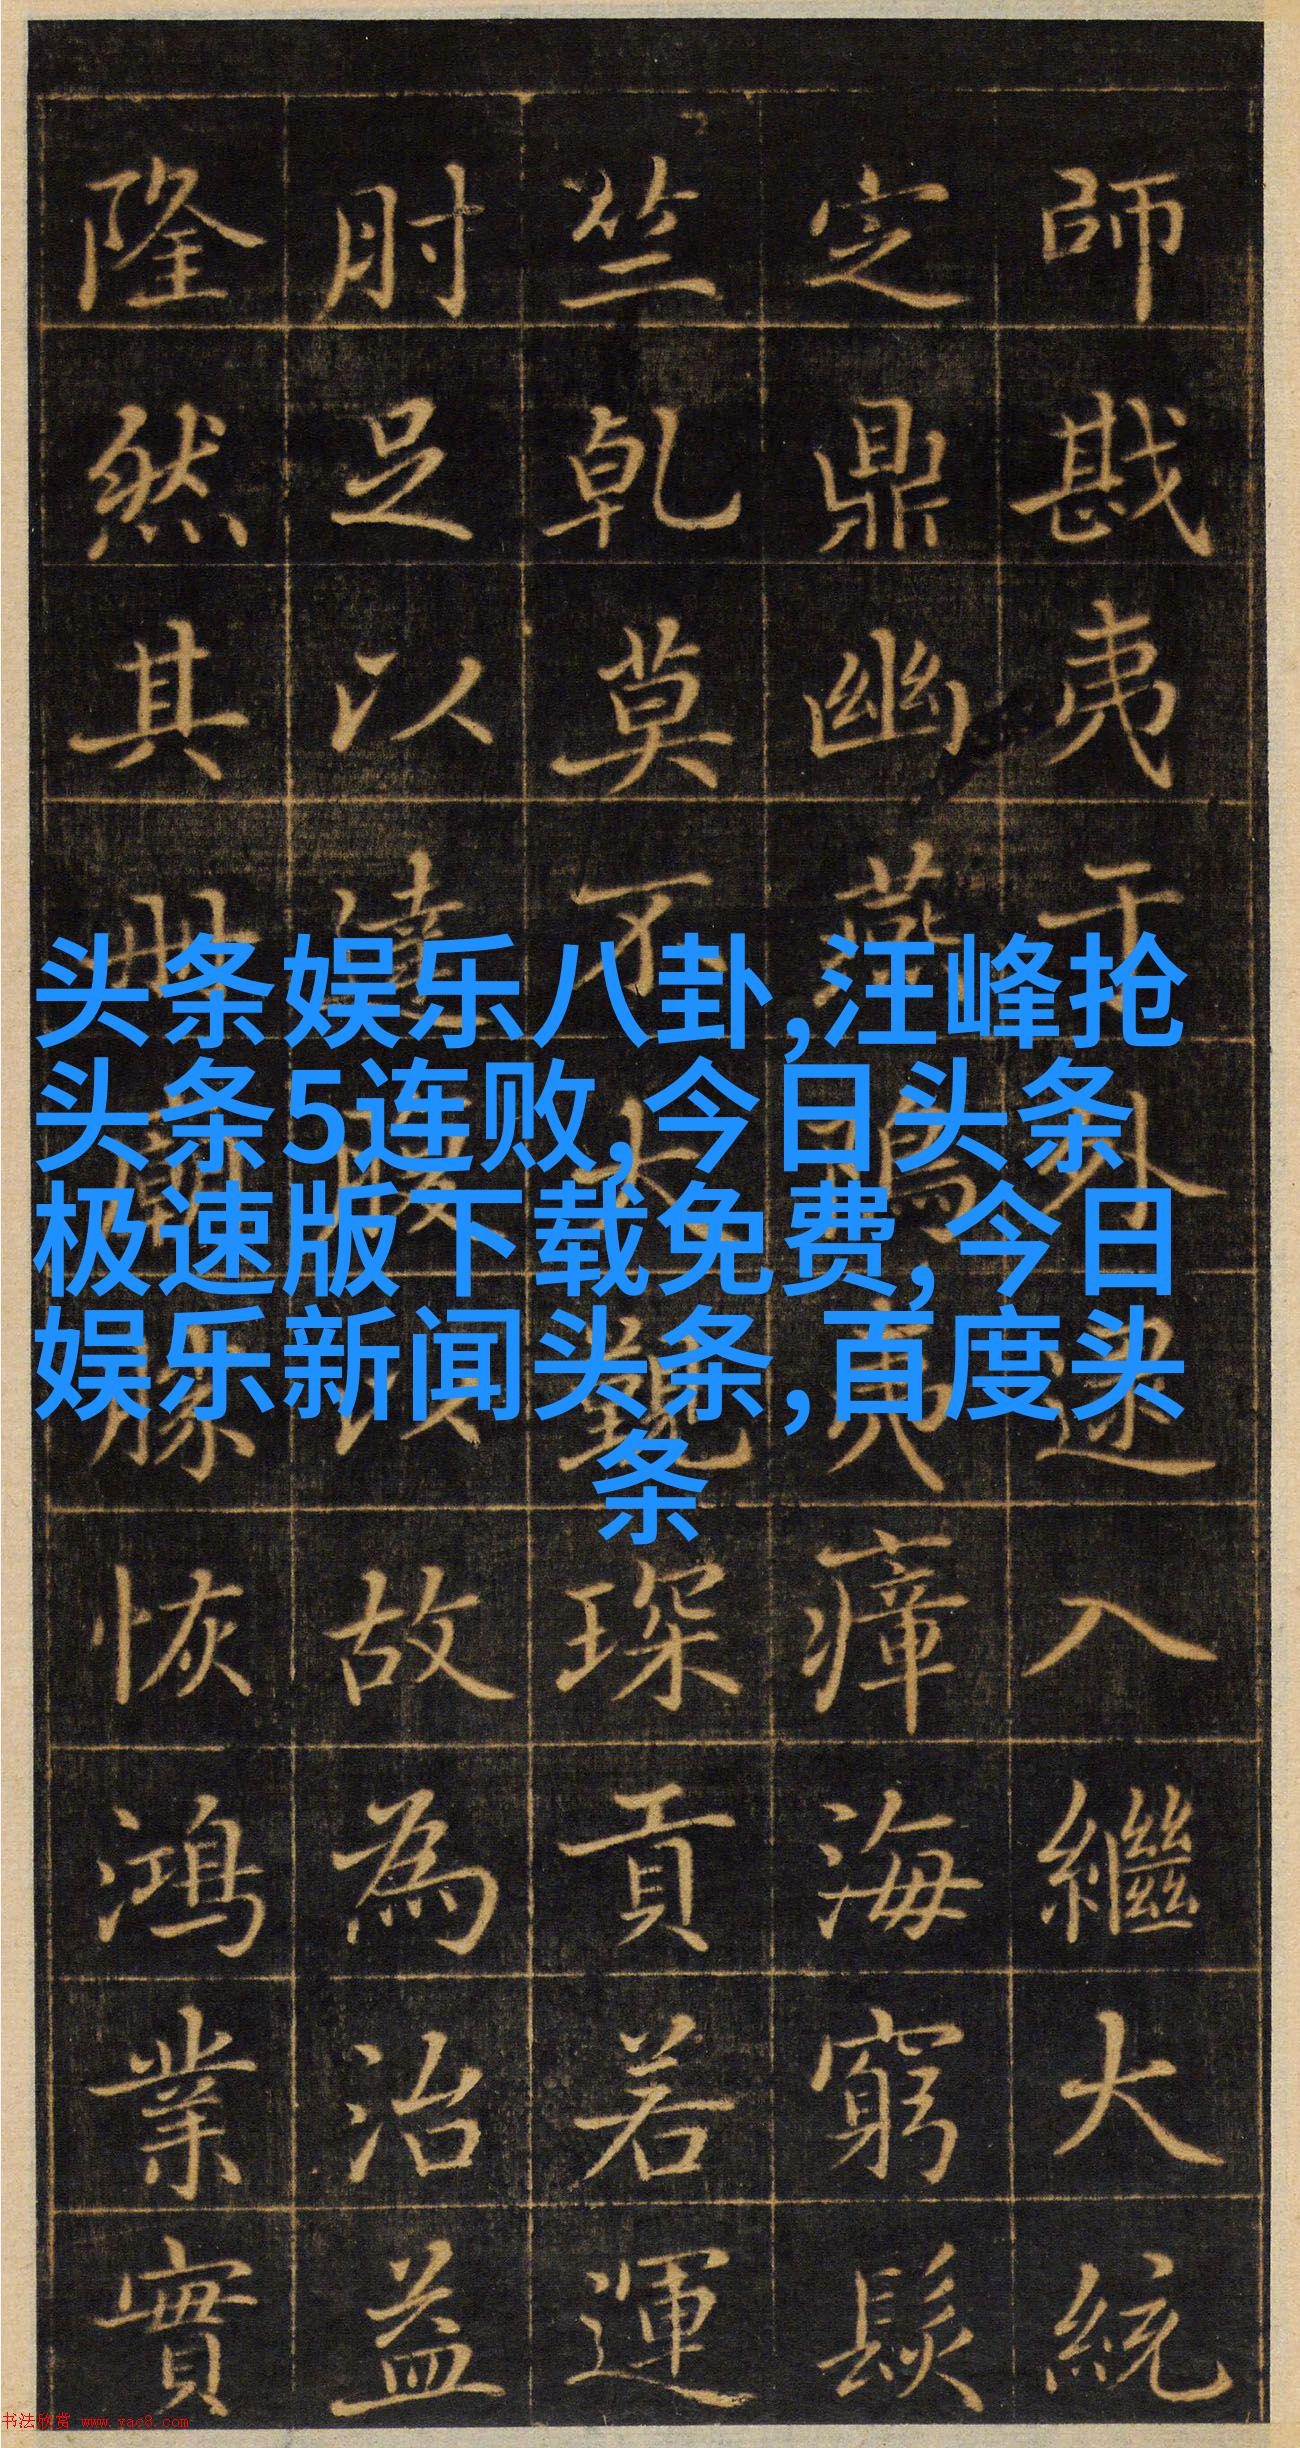 師戡夷于外逮入繼大統
定鼎幽燕夷瘴海窮髮
竺乾莫不覲琛貢若運
肘足以達以故為治益
隆然其冊廟勝恢鴻業實
头条娱乐八卦,汪峰抢
头条5连败,今日头条
极速版下载免费,今日
娱乐新闻头条,百度头
条
书法欣赏 www.yac8.com